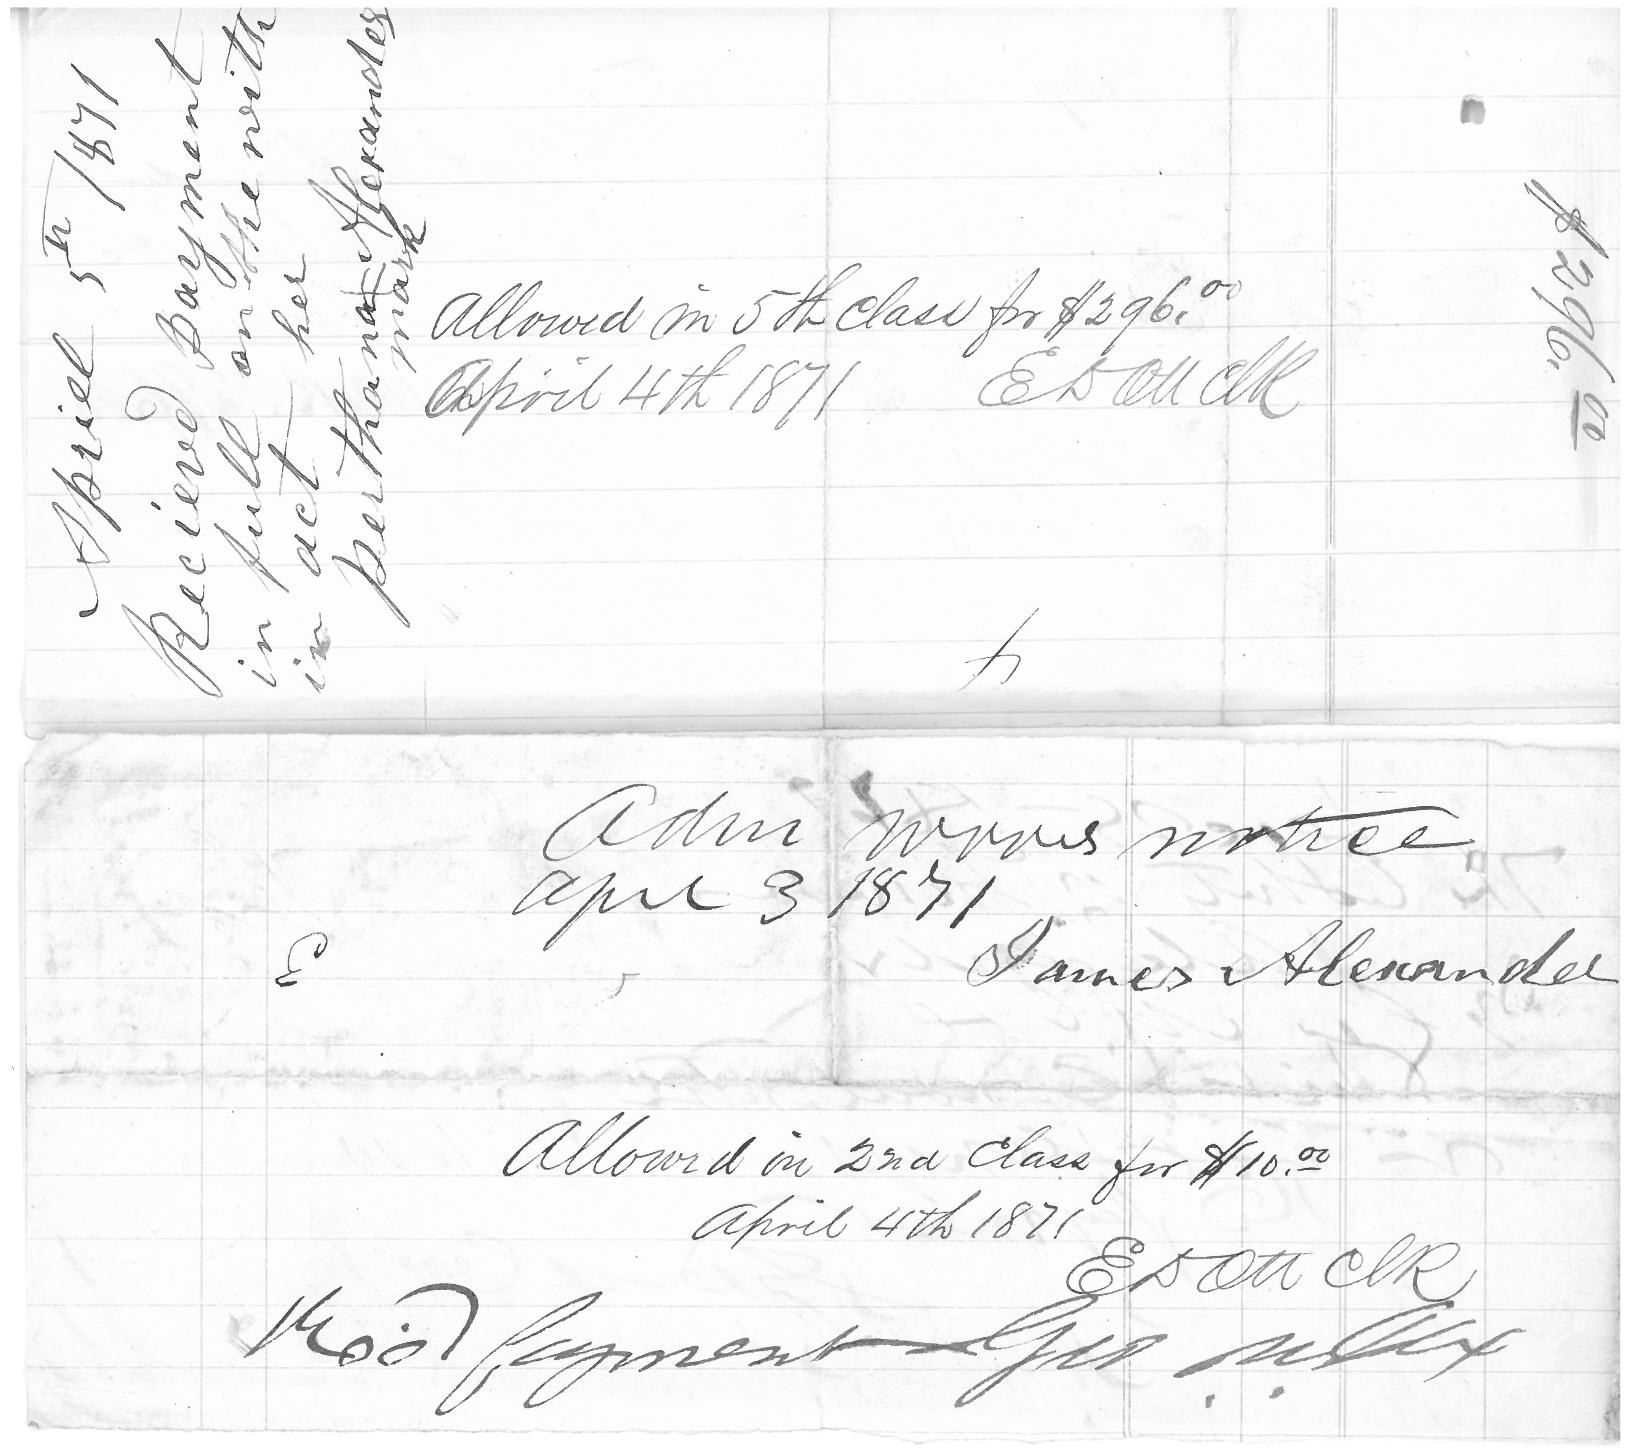 Apriel 5th 1871
Recieved Payment
in full on the with
in act her
perthana Alexander
mark
Allowed in 5th Class for $296.00
April 4th 1871 E D Ott Clk
$296.00
Adm notice
Aprl 3 1871
James Alexander
Allowed in 2nd Class for $10.00
April 4th 1871
E D Ott Clk
payment Geo